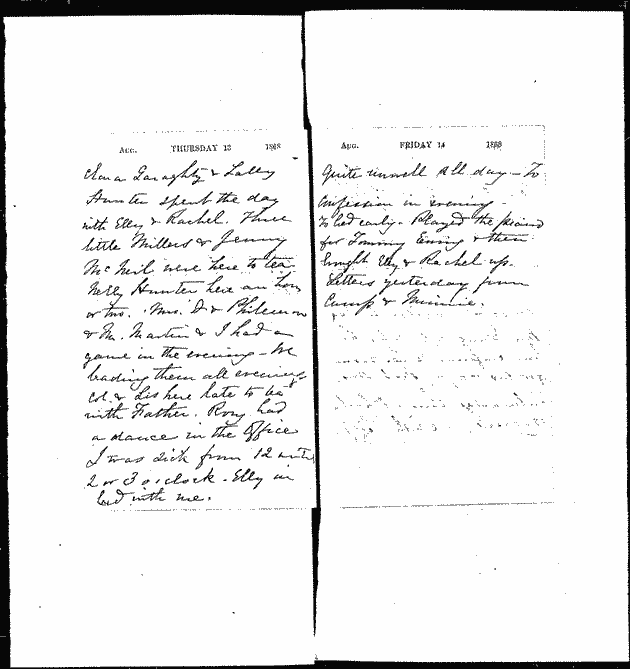 Aug. THURSDAY 13 1868
Geraghty & Lally
Hunter spent the day
with Elly & Rachel. Three
little Millers & Jenny
McNeil were here to tea.
Nelly Hunter here an hour
or two. Mrs. D & Philemon
& Mr. Martin & I had a
game in the evening - We
beating them all evening.
Col. & Lis here late to tea
with Father. Rory had
a dance in the Office
I was sick from 12 until
2 or 3 o'clock - Elly in
bed with me.
Aug. FRIDAY 14 1868
Quite unwell all day - To
Confession in evening -
to bed early. Played the piano
for Tommy & then
brought Elly & Rachel up.
Letters yesterday from
Camp & Minnie.